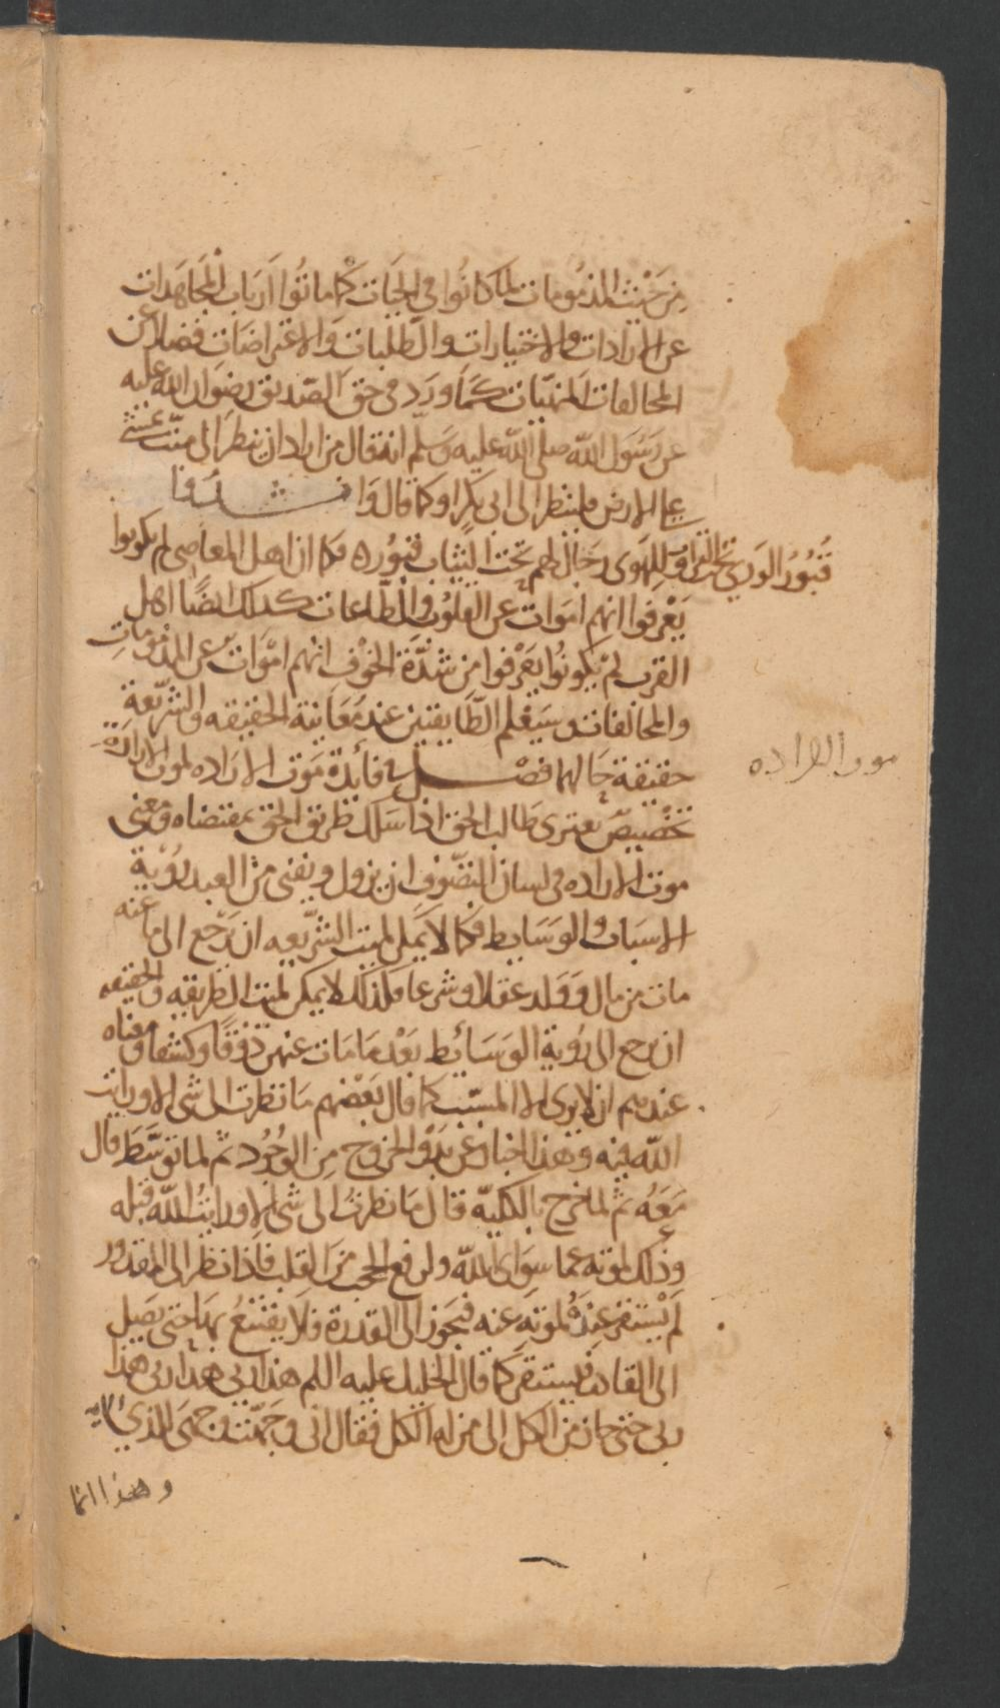 من حيث المذمومات لما كانوا في الحيات كما ماتوا ارباب المجاهدات
عن الارادات والاختيارات والطلبات والاعتراضات فضلا عن
المخالفات المنهيات كما ورد في حق الصديق رضوان الله عليه
عن رسول الله صلى الله عليه وسلم انه قال من اراد ان ينظر الى ميت يمشي
على الارض فلينظر الى ابي بكر او كما قال وانشدوا
قبور الورى تحت التراب وللهوى رجال لهم تحت الثياب قبوره فكما ان اهل المعاصي لم يكونوا
يعرفوا انهم اموات عن القلوب والطاعات كذلك ايضا اهل
القرب لم يكونوا يعرفوا من شدة الخوف انهم اموات عن المذمومات
والمخالفات وسيعلم الطايفتين عند معاينة الحقيقه والشريعة
حقيقة حالهما فصل فائدة موت الاراده لموت الارادة
تخصيص يعترى طالب الحق اذا سلك طريق الحق بمقتضاه ومعنى
موت الاراده في لسان التصوف ان يزول ويفنى من العبد رؤية
الاسباب والوسايط فكما لا يمكن لميت الشريعه ان يرجع الى ما عنه
مات من مال وولد عقلا وشرعا فكذلك لا يمكن لميت الطريقه والحقيقه
ان يرجع الى رؤية الوسائط بعد ما مات عنهن ذوقا وكشفا ومعناه
عندهم ان لا يرى الا المسبب كما قال بعضهم ما نظرت الى شي الا ورايت
الله فيه وهذا اخبار عن بدو الخروج من الوجود ثم لما توسط قال
معه ثم لما خرج بالكليه قال ما نظرت الى شي الا ورايت الله قبله
وذلك لموته عما سوى الله ولرفع الحجب من القلب فاذا نظر الى المقدور
لم يستقر عنده لموته عنه فيجوز الى القدرة فلا يقتنع بها حتى يصل
الى القادر فيستقر كما قال الخليل عليه اللم هذا ربي هذا ربي هذا
ربي حتى جاز من الكل الى من له الكل فقال اني وجهت وجهي للذي الايه
وهذا انما
موت الاراده